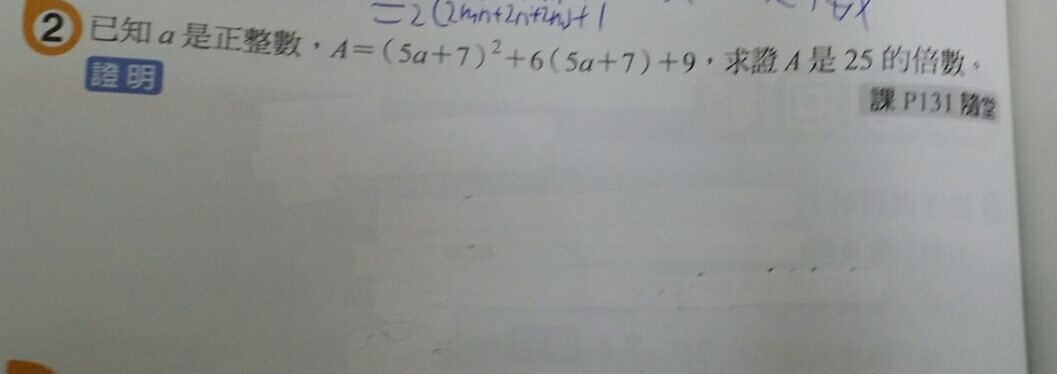 =2(2mn+2n+2m)+1
2 已知 a 是正整數，A=(5a+7)²+6(5a+7)+9，求證 A 是 25 的倍數。
證明
課 P131 隨堂